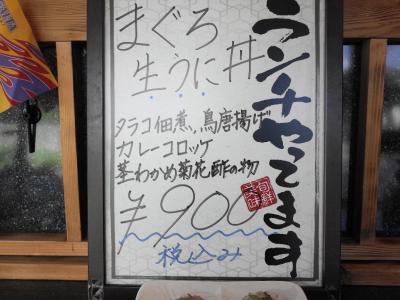 ランチやってます
まぐろ
生うに丼
タラコ佃煮、鳥唐揚げ
カレーコロッケ
茎わかめ菊花酢の物
¥900
税込み
旬鮮美味